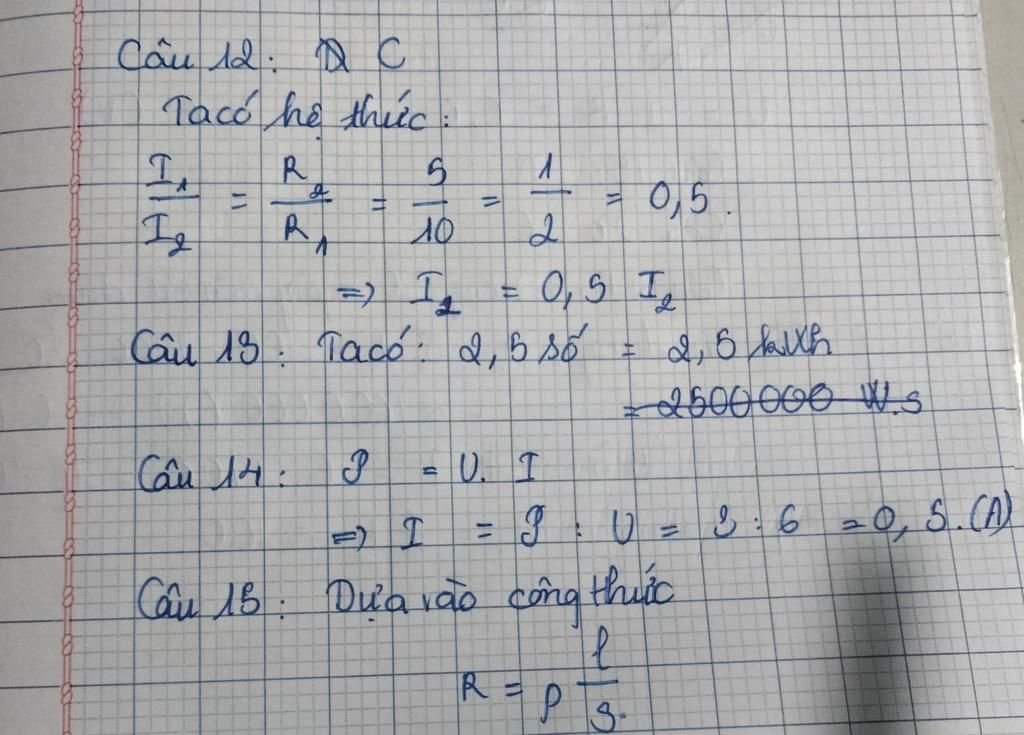 Câu 12: C
Ta có hệ thức:
I₁/I₂ = R₂/R₁ = 5/10 = 1/2 = 0,5.
=> I₁ = 0,5 I₂
Câu 13: Ta có: 2,5 số = 2,5 kWh
= 2500000 W.s
Câu 14: P = U. I
=> I = P : U = 3 : 6 = 0,5. (A)
Câu 15: Dựa vào công thức
R = ρ l/S.